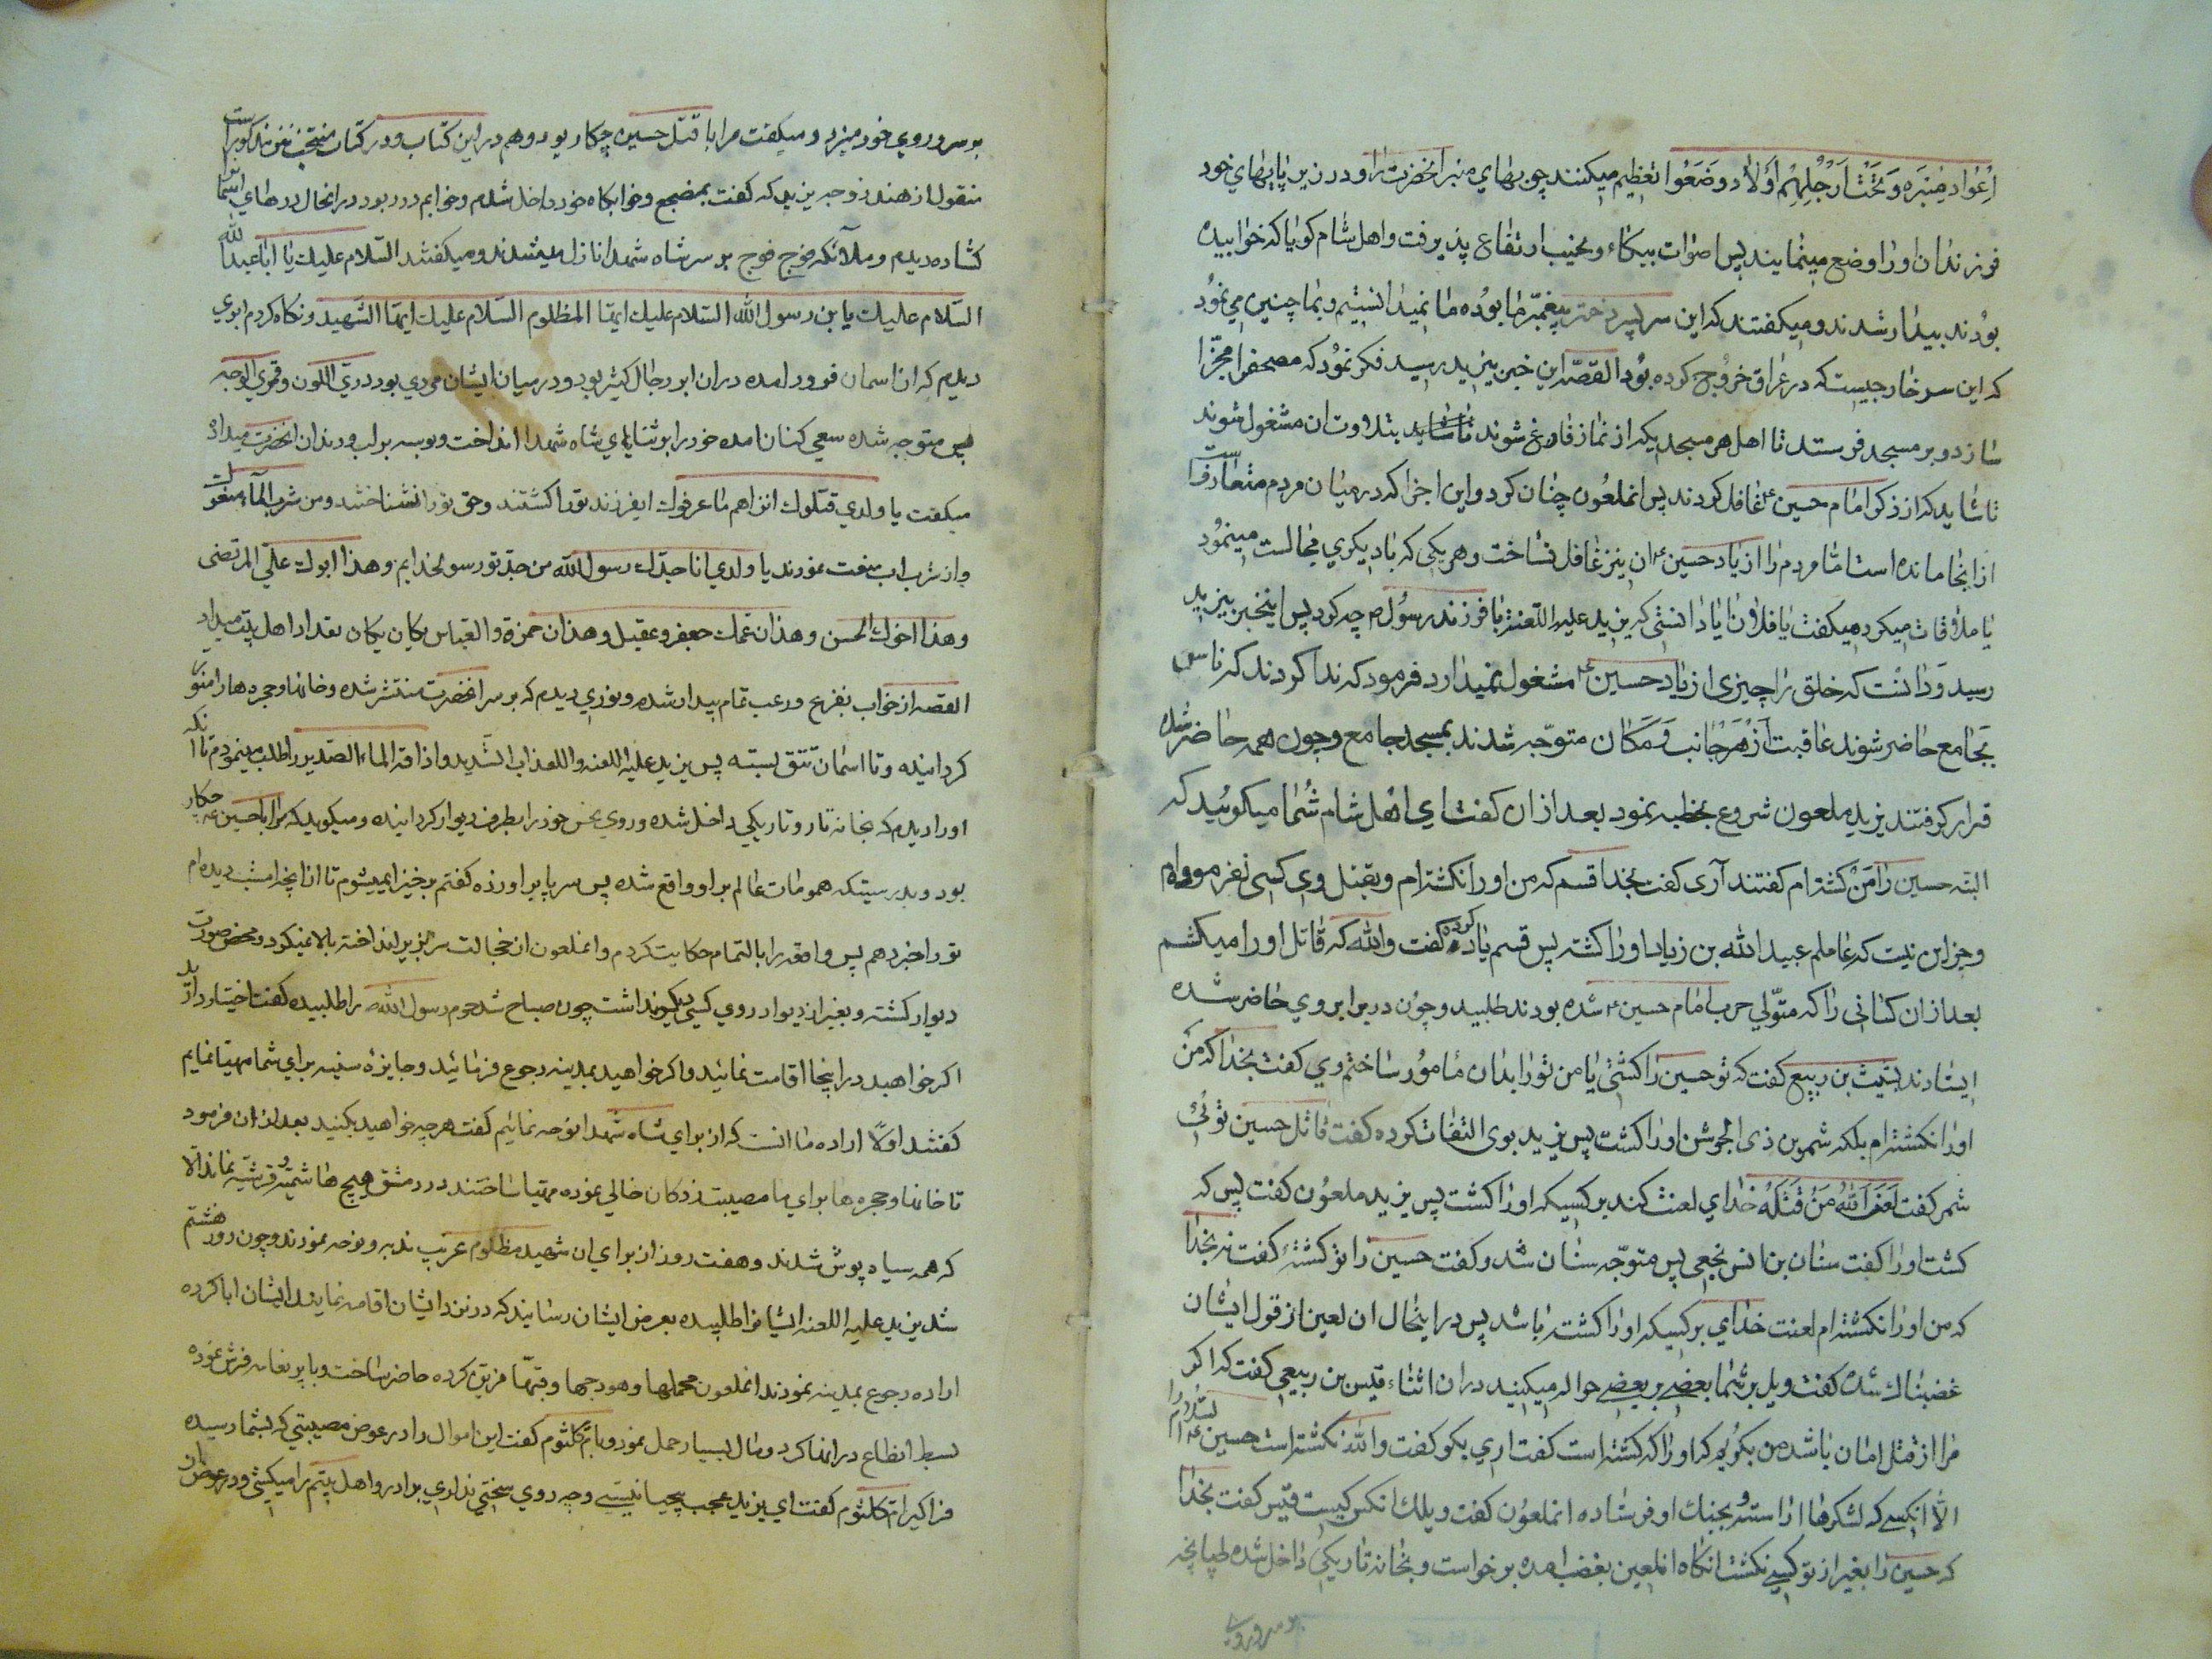 اَعْوادَ مِنبَرِهِ وَتَحْتَ اَرْجُلِهِمْ اَوْلادَهُ وَضَعُوا تعظیم میکنند چوبهای منبر انحضرت را و در زیر پایهای خود
فرزندان او را وضع مینمایند پس اصوات ببکاء و نحیب ارتفاع پذیرفت و اهل شام کویا که خوابیده
بودند بیدار شدند و میکفتند که این سر پسر دختر پیغمبر ما بوده ما نمیدانستیم و بما چنین می نمود
که این سر خارجیست که در عراق خروج کرده بود القصه این خبر بیزید رسید فکر نمود که مصحف را مجزا
سازد و بر مسجد فرستد تا اهل هر مسجد یکه از نماز فارغ شوند بتلاوت ان مشغول شوند
تا شاید که از ذکر امام حسین ع غافل کردند پس انملعون چنان کرد و این اجزا که در میان مردم متعارف است
از انجا مانده است اما مردم را از یاد حسین ع ان نیز غافل نساخت و هر یکی که با دیکری مجالست مینمود
یا ملاقات میکرد میکفت یا فلان ایا دانستی که یزید علیه اللعنه با فرزند رسول ص چه کرد پس اینخبر بیزید
رسید و دانست که خلق را چیزی از یاد حسین ع مشغول نمیدارد فرمود که ندا کردند که ناس
بجامع حاضر شوند عاقبت از هر جانب و مکان متوجه شدند بمسجد جامع و چون همه حاضر شده
قرار کرفتند یزید ملعون شروع بخطبه نمود بعد از ان کفت ای اهل شام شما میکوئید که
البته حسین را من کشته ام کفتند آری کفت بخدا قسم که من او را نکشته ام و بقتل وی کسی نفرموده ام
و جز این نیست که عاملم عبید الله بن زیاد او را کشته پس قسم یاد کرده کفت والله که قاتل او را میکشم
بعد از ان کسانی را که متولی حرب امام حسین ع شده بودند طلبید و چون در برابر وی حاضر شده
ایستادند بشیث بن ربیع کفت که تو حسین را کشتی یا من تو را بدان مامور ساختم وی کفت بخدا که من
او را نکشته ام بلکه شمر بن ذی الجوشن او را کشت پس یزید بوی التفات کرده کفت قاتل حسین توئی
شمر کفت لَعَنَ اللهُ مَنْ قَتَلَهُ خدای لعنت کند بر کسیکه او را کشت پس یزید ملعون کفت پس که
کشت او را کفت سنان بن انس نجعی پس متوجه سنان شد و کفت حسین را تو کشتهٔ کفت نه بخدا
که من او را نکشته ام لعنت خدای بر کسیکه او را کشته باشد پس در اینحال ان لعین از قول ایشان
غضبناك شده کفت ویل بر شما بعضی بر بعضی حواله میکنید در ان اثناء قیس بن ربیعی کفت که اکر
مرا از قتل امان باشد من بکویم که او را که کشته است کفت اری بکو کفت والله نکشته است حسین ع
الا انکسی که لشکرها اراسته و بجنك او فرستاده انملعون کفت ویلك انکس کیست قیس کفت بخدا
که حسین را بغیر از تو کسی نکشت انکاه انلعین بغضب امده برخواست و بخانه تاریکی داخل شده طپانچه
بر سر و روی
بر سر و روی خود میزد و میکفت مرا با قتل حسین چکار بود و هم در این کتاب و در کتاب منتخب مذکور است
منقول از هند زوجه یزید که کفت بمضجع و خوابکاه خود داخل شدم و خوابم در ربود در انحال درهای اسمان
کشاده دیدم و ملائکه فوج فوج بر سر شاه شهدا نازل میشدند و میکفتند السلام علیك یا ابا عبد الله
السلام علیك یا بن رسول الله السلام علیك ایها المظلوم السلام علیك ایها الشهید و نکاه کردم ابری
دیدم که از اسمان فرود امده در ان ابر رجال کثیر بود و در میان ایشان مردی بود دری اللون و قمری الوجه
پس متوجه شده سعی کنان امده خود را بر ثنایای شاه شهدا انداخت و بوسه بر لب و دندان انحضرت میداد
میکفت یا ولدی قتلوك اتراهم ما عرفوك ایفرزند تو را کشتند و حق تو را نشناختند و من شرب الماء منعوك
و از شرب اب منعت نمودند یا ولدی انا جدك رسول الله من جد تو رسولخدایم و هذا ابوك علی المرتضی
و هذا اخوك الحسن و هذان عمك جعفر و عقیل و هذان حمزة و العباس یکان یکان تعداد اهل بیت میداد
القصه از خواب بفزع و رعب تمام بیدار شده و نوری دیدم که بر سر انحضرت منتشر شده و خانها و حجرها را منور
کردانیده و تا اسمان تتق بسته پس یزید علیه اللعنه و العذاب الشدید و اذاقه الماء الصدید را طلب مینمودم تا انکه
او را دیدم که بخانه تار و تاریکی داخل شده و روی نحس خود را بطرف دیوار کردانیده و میکوید که مرا با حسین ع چکار
بود و بدرستیکه همومات عالم بر او واقع شده پس سر بزیر اورده کفتم برخیز ایمیشوم تا از انچه امشب دیده ام
تو را خبر دهم پس واقعه را بالتمام حکایت کردم و انملعون از خجالت سر بزیر انداخته بالا نمیکرد و محض صورت
دیوار کشته و بغیر از دیوار روی کسی نداشت چون صباح شد حرم رسول الله ص را طلبیده کفت اختیار دارید
اکر خواهید در اینجا اقامت نمائید و اکر خواهید بمدینه رجوع فرمائید و جایزه سنیه برای شما مهیا نمایم
کفتند اولا اراده ما انست که از برای شاه شهدا نوحه نمائیم کفت هر چه خواهید بکنید بعد از ان فرمود
تا خانها و حجره ها برای ما مصیبت زدکان خالی نموده مهیا ساختند در دمشق هیچ هاشمیه و قرشیه نماند الا
که همه سیاه پوش شدند و هفت روز از برای ان شهید مظلوم غریب ندبه و نوحه نمودند و چون روز هشتم
شد یزید علیه اللعنه ایشانرا طلبیده بعرض ایشان رسانید که در نزد ایشان اقامه نمایند ایشان ابا کرده
اراده رجوع بمدینه نمودند انملعون محملها و هودجها و قبها مزین کرده حاضر ساخت و فرش نموده
بسط انطاع در انها کرد و مال بسیار حمل نمود و بام کلثوم کفت این اموال را در عوض مصیبتی که بشما رسیده
فرا کیر ام کلثوم کفت ای یزید عجب بیحیا نیستی و چه روی سختی نداری برادر و اهل بیتم را میکشی و در عوض ان